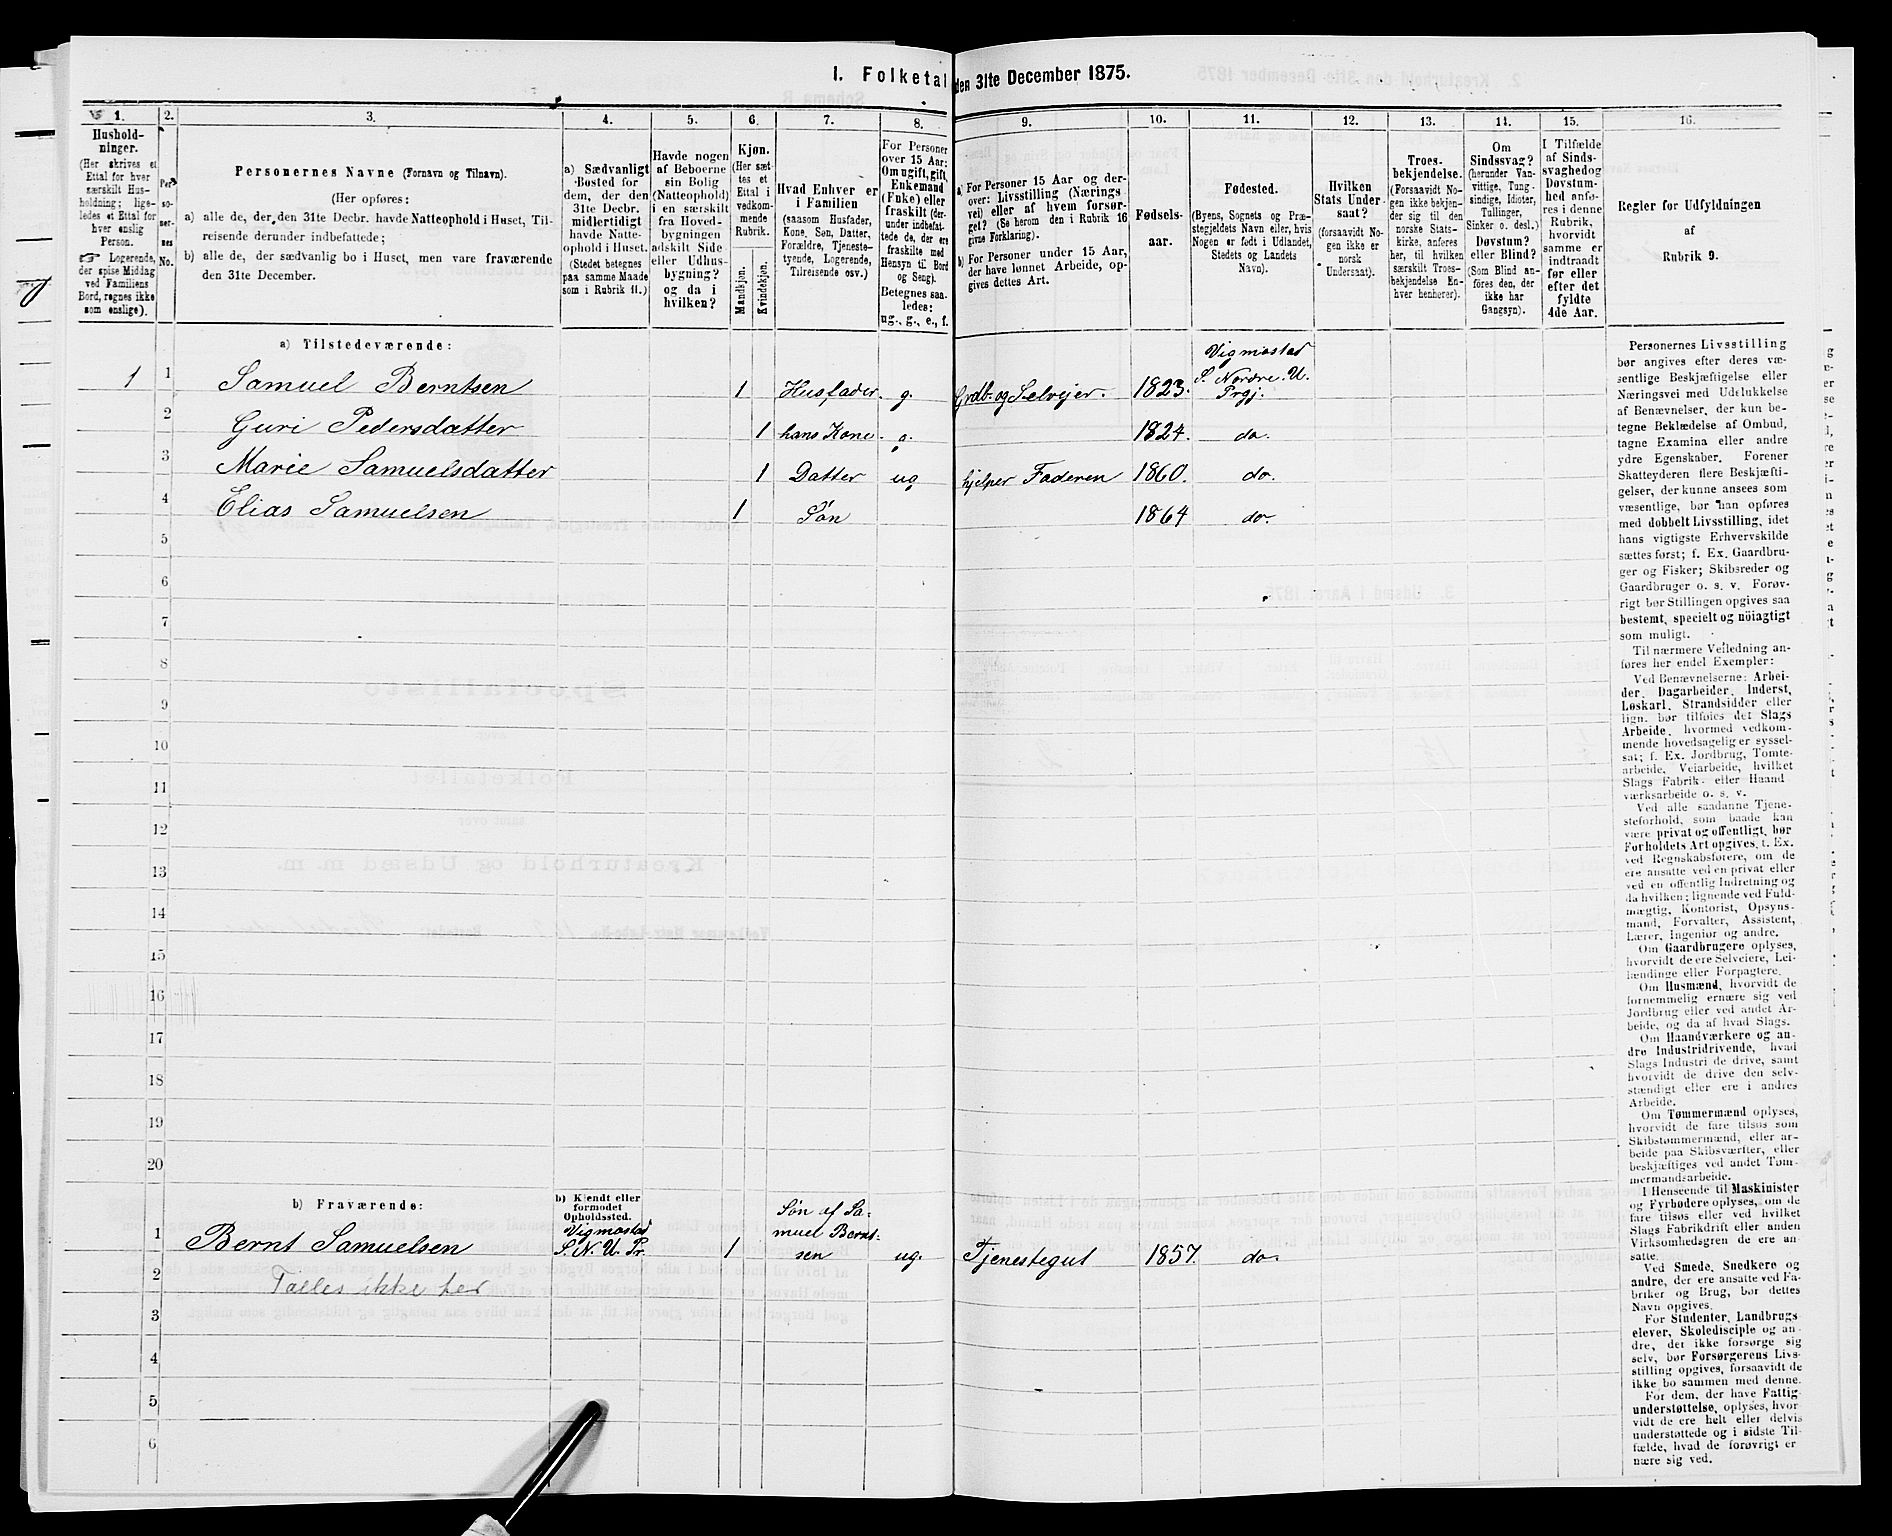 I. Folketal den 31te December 1875.
1.
2.
3.
4.
5.
6.
7.
8.
9.
10.
11.
12.
13.
14.
15.
16.
Hushold-
ninger.
(Her skrives et
Ettal for hver
særskilt Hus-
holdning; lige-
ledes et Ettal for
hver enslig
Person.
☞ Logerende,
der spise Middag
ved Familiens
Bord, regnes ikke
som enslige).
Per-
so-
ner-
nes
No.
Personernes Navne (Fornavn og Tilnavn).
(Her opføres:
a) alle de, der den 31te Decbr. havde Natteophold i Huset, Til-
reisende derunder indbefattede;
b) alle de, der sædvanlig bo i Huset, men vare fraværende
den 31te December.
a) Sædvanligt
Bosted for
dem, der den
31te Decbr.
midlertidigt
havde Natte-
ophold i Huset.
(Stedet betegnes
paa samme Maade
som i Rubrik 11.)
Havde nogen
af Beboerne
sin Bolig
(Natteophold)
i en særskilt
fra Hoved-
bygningen
adskilt Side-
eller Udhus-
bygning?
og da i
hvilken?
Kjøn.
(Her sæt-
tes et
Ettal i
vedkom-
mende
Rubrik.
Mandkjøn.
Kvindekjøn.
Hvad Enhver er
i Familien
(saasom Husfader,
Kone, Søn, Datter,
Forældre, Tjeneste-
tyende, Logerende,
Tilreisende osv.)
For Personer
over 15 Aar:
Om ugift, gift,
Enkemand
(Enke) eller
fraskilt (der-
under indbefat-
tede de, der ere
fraskilte med
Hensyn til Bord
og Seng).
Betegnes saa-
ledes:
ug., g., e., f.
a) For Personer 15 Aar og der-
over: Livsstilling (Nærings-
vei) eller af hvem forsør-
get? (Se herom den i Rubrik 16
givne Forklaring).
b) For Personer under 15 Aar,
der have lønnet Arbeide, op-
gives dettes Art.
Fødsels-
aar.
Fødested.
(Byens, Sognets og Præ-
stegjeldets Navn eller, hvis
Nogen er født i Udlandet,
Stedets og Landets
Navn).
Hvilken
Stats Under-
saat?
(forsaavidt No-
gen ikke er
norsk
Undersaat).
Troes-
bekjendelse.
(Forsaavidt No-
gen ikke bekjen-
der sig til den
norske Stats-
kirke, anføres
her, til hvilken
særskilt Troes-
bekjendelse En-
hver henhører).
Om
Sindssvag?
(herunder Van-
vittige, Tung-
sindige, Idioter,
Tullinger,
Sinker o. desl.)
Døvstum?
eller Blind?
(Som Blind an-
føres den, der
ikke har
Gangsyn).
I Tilfælde
af Sinds-
svaghed og
Døvstum-
hed anfø-
res i denne
Rubrik,
hvorvidt
samme er
indtraadt
før eller
efter det
fyldte
4de Aar.
Regler for Udfyldningen
af
Rubrik 9.
a) Tilstedeværende:
1 1 Samuel Berntsen 1 Husfader. g. Grdb. og Selvejer. 1823. Vigmostad
S. Nordre. U.
Prgj.
2 Guri Pedersdatter 1 hans Kone. g. 1824. do.
3 Marie Samuelsdatter 1 Datter ug hjelper Faderen 1860. do.
4 Elias Samuelsen 1 Søn 1864 do.
5
6
7
8
9
10
11
12
13
14
15
16
17
18
19
20
b) Fraværende:
b) Kjendt eller
formodet
Opholdssted.
1 Bernt Samuelsen Vigmostad
S. N. U. Pr. 1 Søn af Sa-
muel Bernt-
sen ug. Tjenestegut 1857. do.
2 Tælles ikke her
3
4
5
6
Personernes Livsstilling
bør angives efter deres væ-
sentlige Beskjæftigelse eller
Næringsvei med Udelukkelse
af Benævnelser, der kun be-
tegne Beklædelse af Ombud,
tagne Examina eller andre
ydre Egenskaber. Forener
Skatteyderen flere Beskjæfti-
gelser, der kunne ansees som
væsentlige, bør han opføres
med dobbelt Livsstilling, idet
hans vigtigste Erhvervskilde
sættes først; f. Ex. Gaardbru-
ger og Fisker; Skibsreder og
Gaardbruger o. s. v. Forøv-
rigt bør Stillingen opgives saa
bestemt, specielt og nöiagtigt
som muligt.
Til nærmere Veiledning an-
føres her endel Exempler:
Ved Benævnelserne: Arbei-
der, Dagarbeider, Inderst,
Løskarl, Strandsidder eller
lign. bør tilføies det Slags
Arbeide, hvormed vedkom-
mende hovedsagelig er syssel-
sat; f. Ex. Jordbrug, Tomte-
arbeide, Veiarbeide, hvilket
Slags Fabrik- eller Haand-
værksarbeide o. s. v.
Ved alle saadanne Tjene-
steforhold, som baade kan
være privat og offentligt, bør
Forholdets Art opgives, t. Ex.
ved Regnskabsførere, om de
ere ansatte ved en privat eller
ved en offentlig Indretning og
da hvilken; lignende ved Fuld-
mægtig, Kontorist, Opsyns-
mand, Forvalter, Assistent,
Lærer, Ingeniør og andre.
Om Gaardbrugere oplyses,
hvorvidt de ere Selveiere, Lei-
lændinge eller Forpagtere.
Om Husmænd, hvorvidt de
fornemmelig ernære sig ved
Jordbrug eller ved andet Ar-
beide, og da af hvad Slags.
Om Haandværkere og an-
dre Industridrivende, hvad
Slags Industri de drive, samt
hvorvidt de drive den selv-
stændigt eller ere i andres
Arbeide.
Om Tømmermænd oplyses,
hvorvidt de fare tilsøs som
Skibstømmermænd, eller ar-
beide paa Skibsværfter, eller
beskjæftiges ved andet Tøm-
mermandsarbeide.
I Henseende til Maskinister
og Fyrbødere oplyses, om de
fare tilsøs eller ved hvilket
Slags Fabrikdrift eller anden
Virksomhedsgren de ere an-
satte.
Ved Smede, Snedkere og
andre, der ere ansatte ved Fa-
briker og Brug, bør dettes
Navn opgives.
For Studenter, Landbrugs-
elever, Skoledisciple og an-
dre, der ikke forsørge sig
selv, bør Forsørgerens Livs-
stilling opgives, forsaavidt de
ikke bo sammen med denne.
For dem, der have Fattig-
understøttelse, oplyses, hvor-
vidt de ere helt eller delvis
understøttede og i sidste Til-
fælde, hvad de forøvrigt er-
nære sig ved.